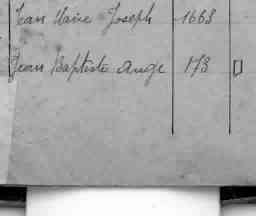 Jean Marie Joseph 1663
Jean Baptiste Ange 173